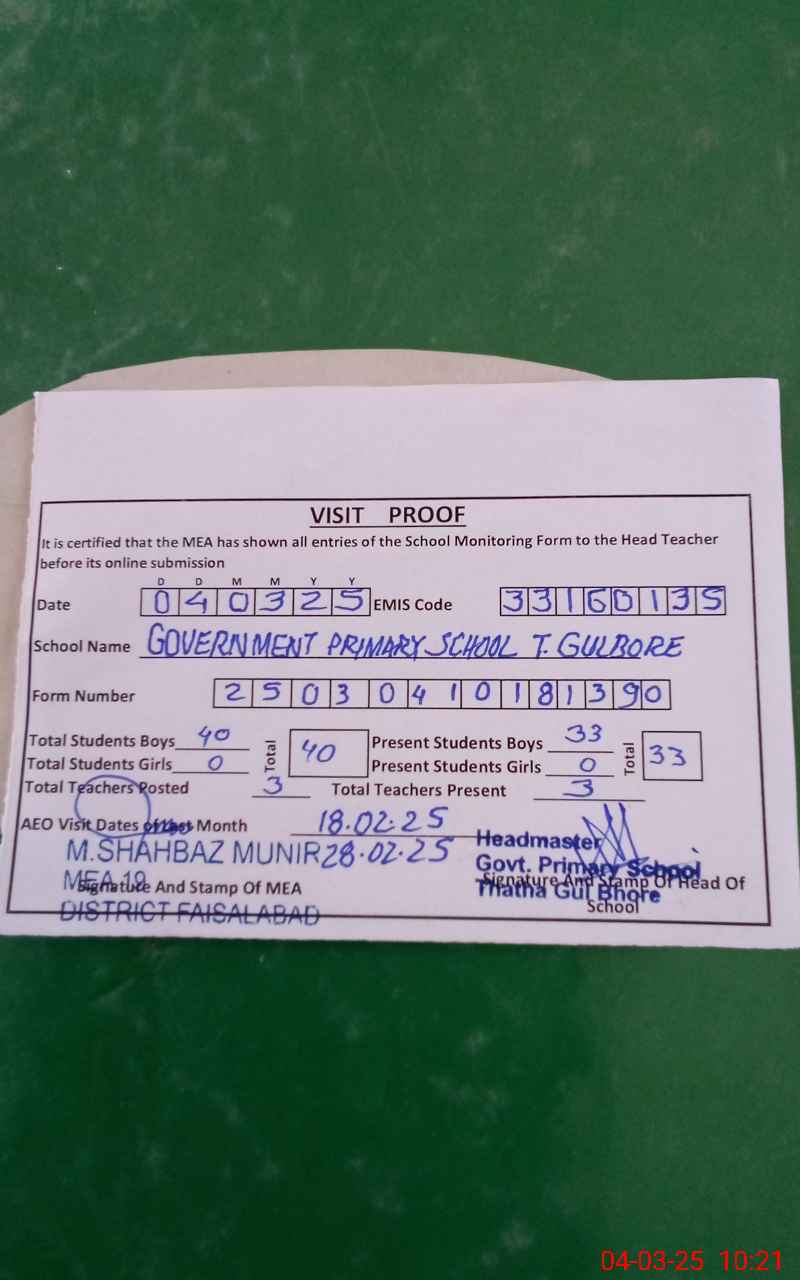 VISIT PROOF
It is certified that the MEA has shown all entries of the School Monitoring Form to the Head Teacher
before its online submission
D D M M Y Y
Date 040325 EMIS Code 33160135
School Name GOVERNMENT PRIMARY SCHOOL T. GULBORE
Form Number 25030410181390
Total Students Boys 40 Total 40 Present Students Boys 33 Total 33
Total Students Girls 0 Present Students Girls 0
Total Teachers Posted 3 Total Teachers Present 3
AEO Visit Dates of last Month 18.02.25
28.02.25
M.SHAHBAZ MUNIR
MEA 19
DISTRICT FAISALABAD
Signature And Stamp Of MEA
Headmaster
Govt. Primary School
Thatha Gul Bhore
Signature And Stamp Of Head Of
School
04-03-25 10:21